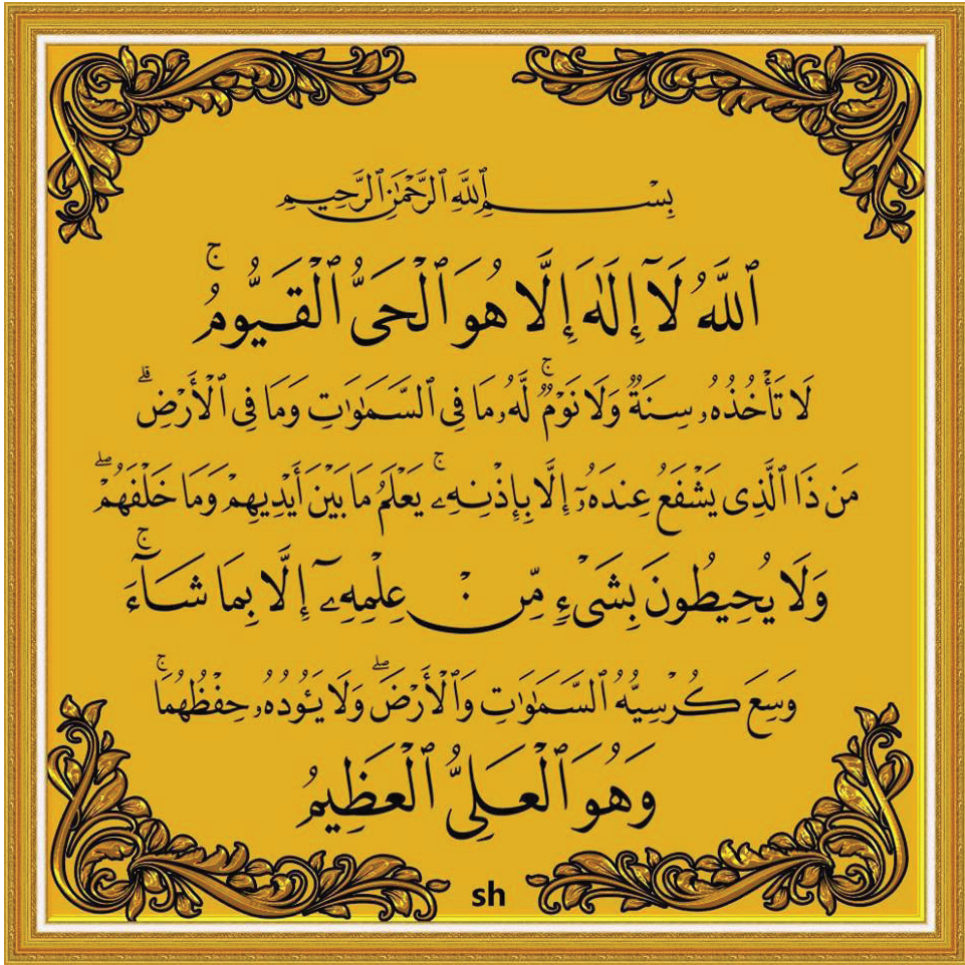 بِسْمِ ٱللَّهِ ٱلرَّحْمَٰنِ ٱلرَّحِيمِ
ٱللَّهُ لَآ إِلَٰهَ إِلَّا هُوَ ٱلْحَىُّ ٱلْقَيُّومُ ۚ
لَا تَأْخُذُهُۥ سِنَةٌ وَلَا نَوْمٌ ۚ لَّهُۥ مَا فِى ٱلسَّمَٰوَٰتِ وَمَا فِى ٱلْأَرْضِ ۗ
مَن ذَا ٱلَّذِى يَشْفَعُ عِندَهُۥٓ إِلَّا بِإِذْنِهِۦ ۚ يَعْلَمُ مَا بَيْنَ أَيْدِيهِمْ وَمَا خَلْفَهُمْ ۖ
وَلَا يُحِيطُونَ بِشَىْءٍ مِّنْ عِلْمِهِۦٓ إِلَّا بِمَا شَآءَ ۚ
وَسِعَ كُرْسِيُّهُ ٱلسَّمَٰوَٰتِ وَٱلْأَرْضَ ۖ وَلَا يَـُٔودُهُۥ حِفْظُهُمَا ۚ
وَهُوَ ٱلْعَلِىُّ ٱلْعَظِيمُ
sh